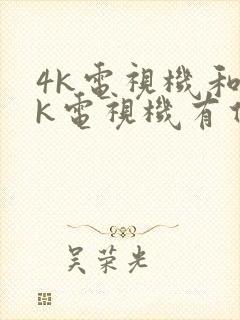 4K電視機和
K電視機有
吴荣光